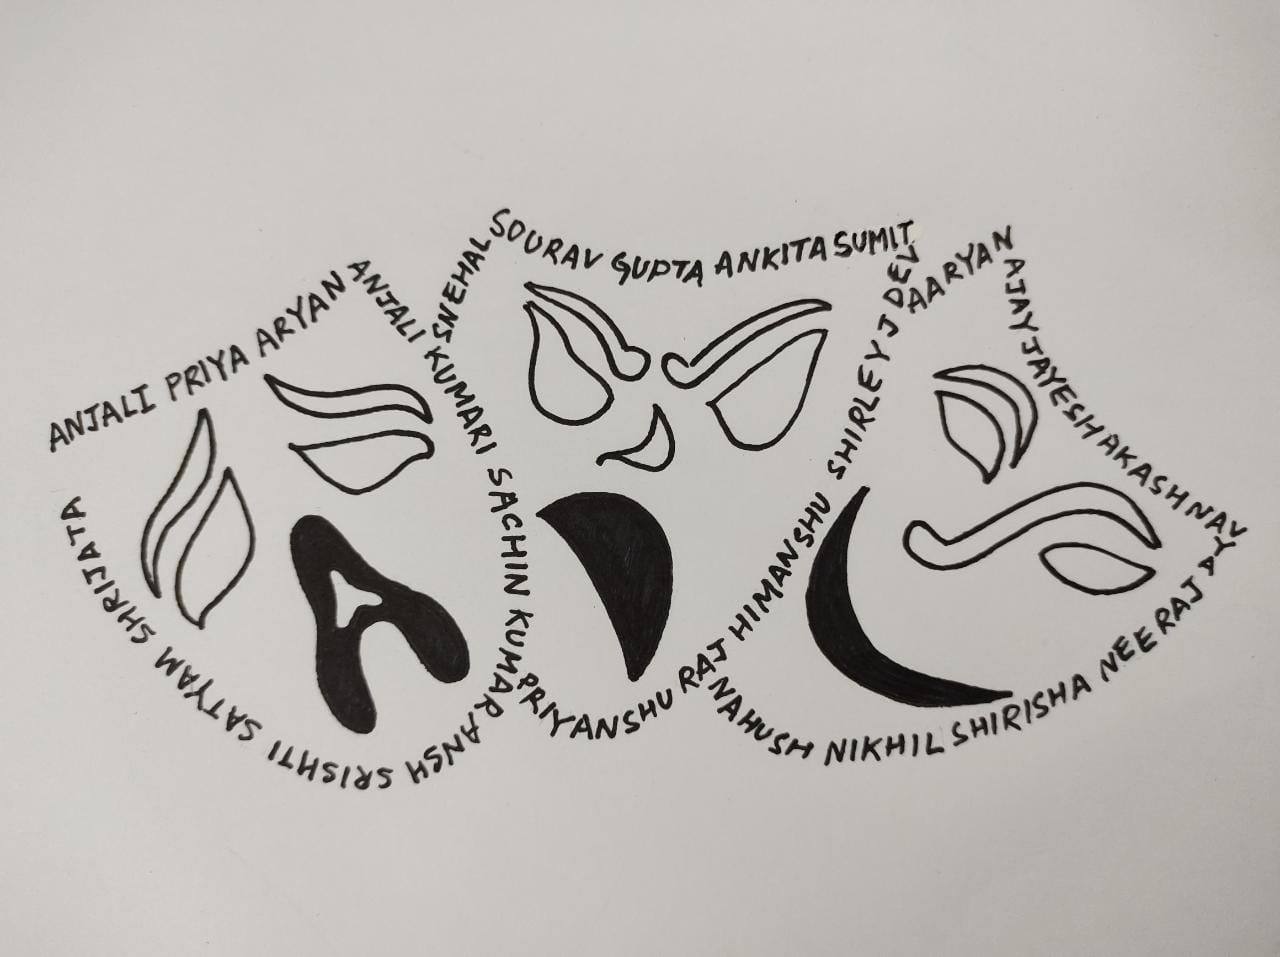 ANJALI PRIYA ARYAN
ANJALI KUMARI SACHIN KUMAR
ANSH SRISHTI SATYAM SHRIJATA
SNEHAL
SOURAV GUPTA ANKITA SUMIT
DEV
SHIRLEY J
HIMANSHU
PRIYANSHU RAJ
AARYAN
AJAY JAYESH AKASH NAVYA
NEERAJ
NAHUSH NIKHIL SHIRISHA